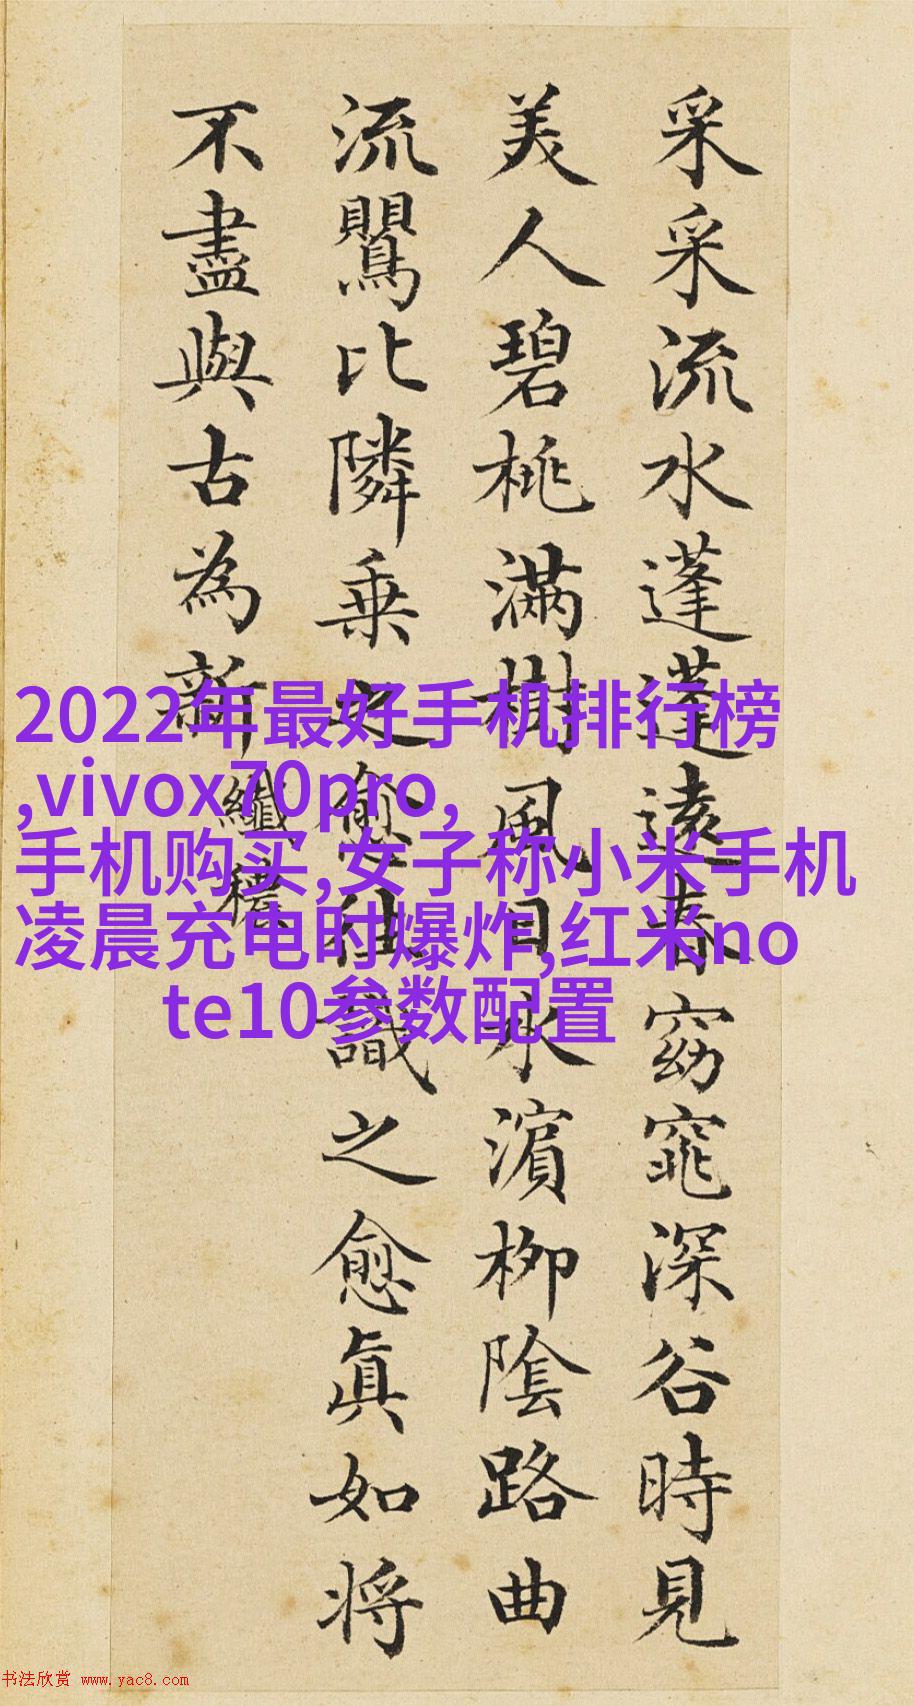 采采流水蓬蓬遠春窈窕深谷時見
美人碧桃滿樹風日水濱柳陰路曲
流鸎比隣乗之愈往識之愈眞如将
不盡與古為新
纖穠
2022年最好手机排行榜
,vivox70pro,
手机购买,女子称小米手机
凌晨充电时爆炸,红米no
te10参数配置
书法欣赏 www.yac8.com